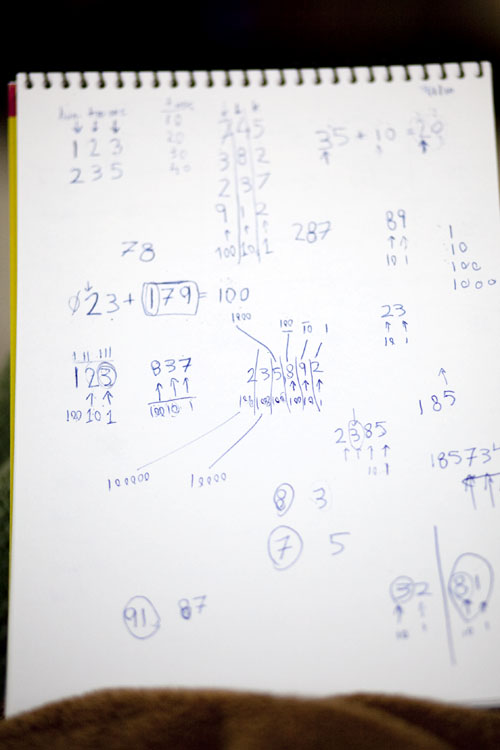 1 2 3
2 3 5
10
20
30
40
7 4 5
3 8 2
2 3 7
9 1 2
100 10 1
35 + 10 = 20
78
287
89
10 1
1
10
100
1000
023 + 179 = 100
1000
23
10 1
123
100 10 1
837
100 10 1
100 10 1
2 3 5 8 9 2
100 10 1
100000
10000
185
2385
10 1
18573
8 3
7 5
91 87
32
10 1
81
10 1